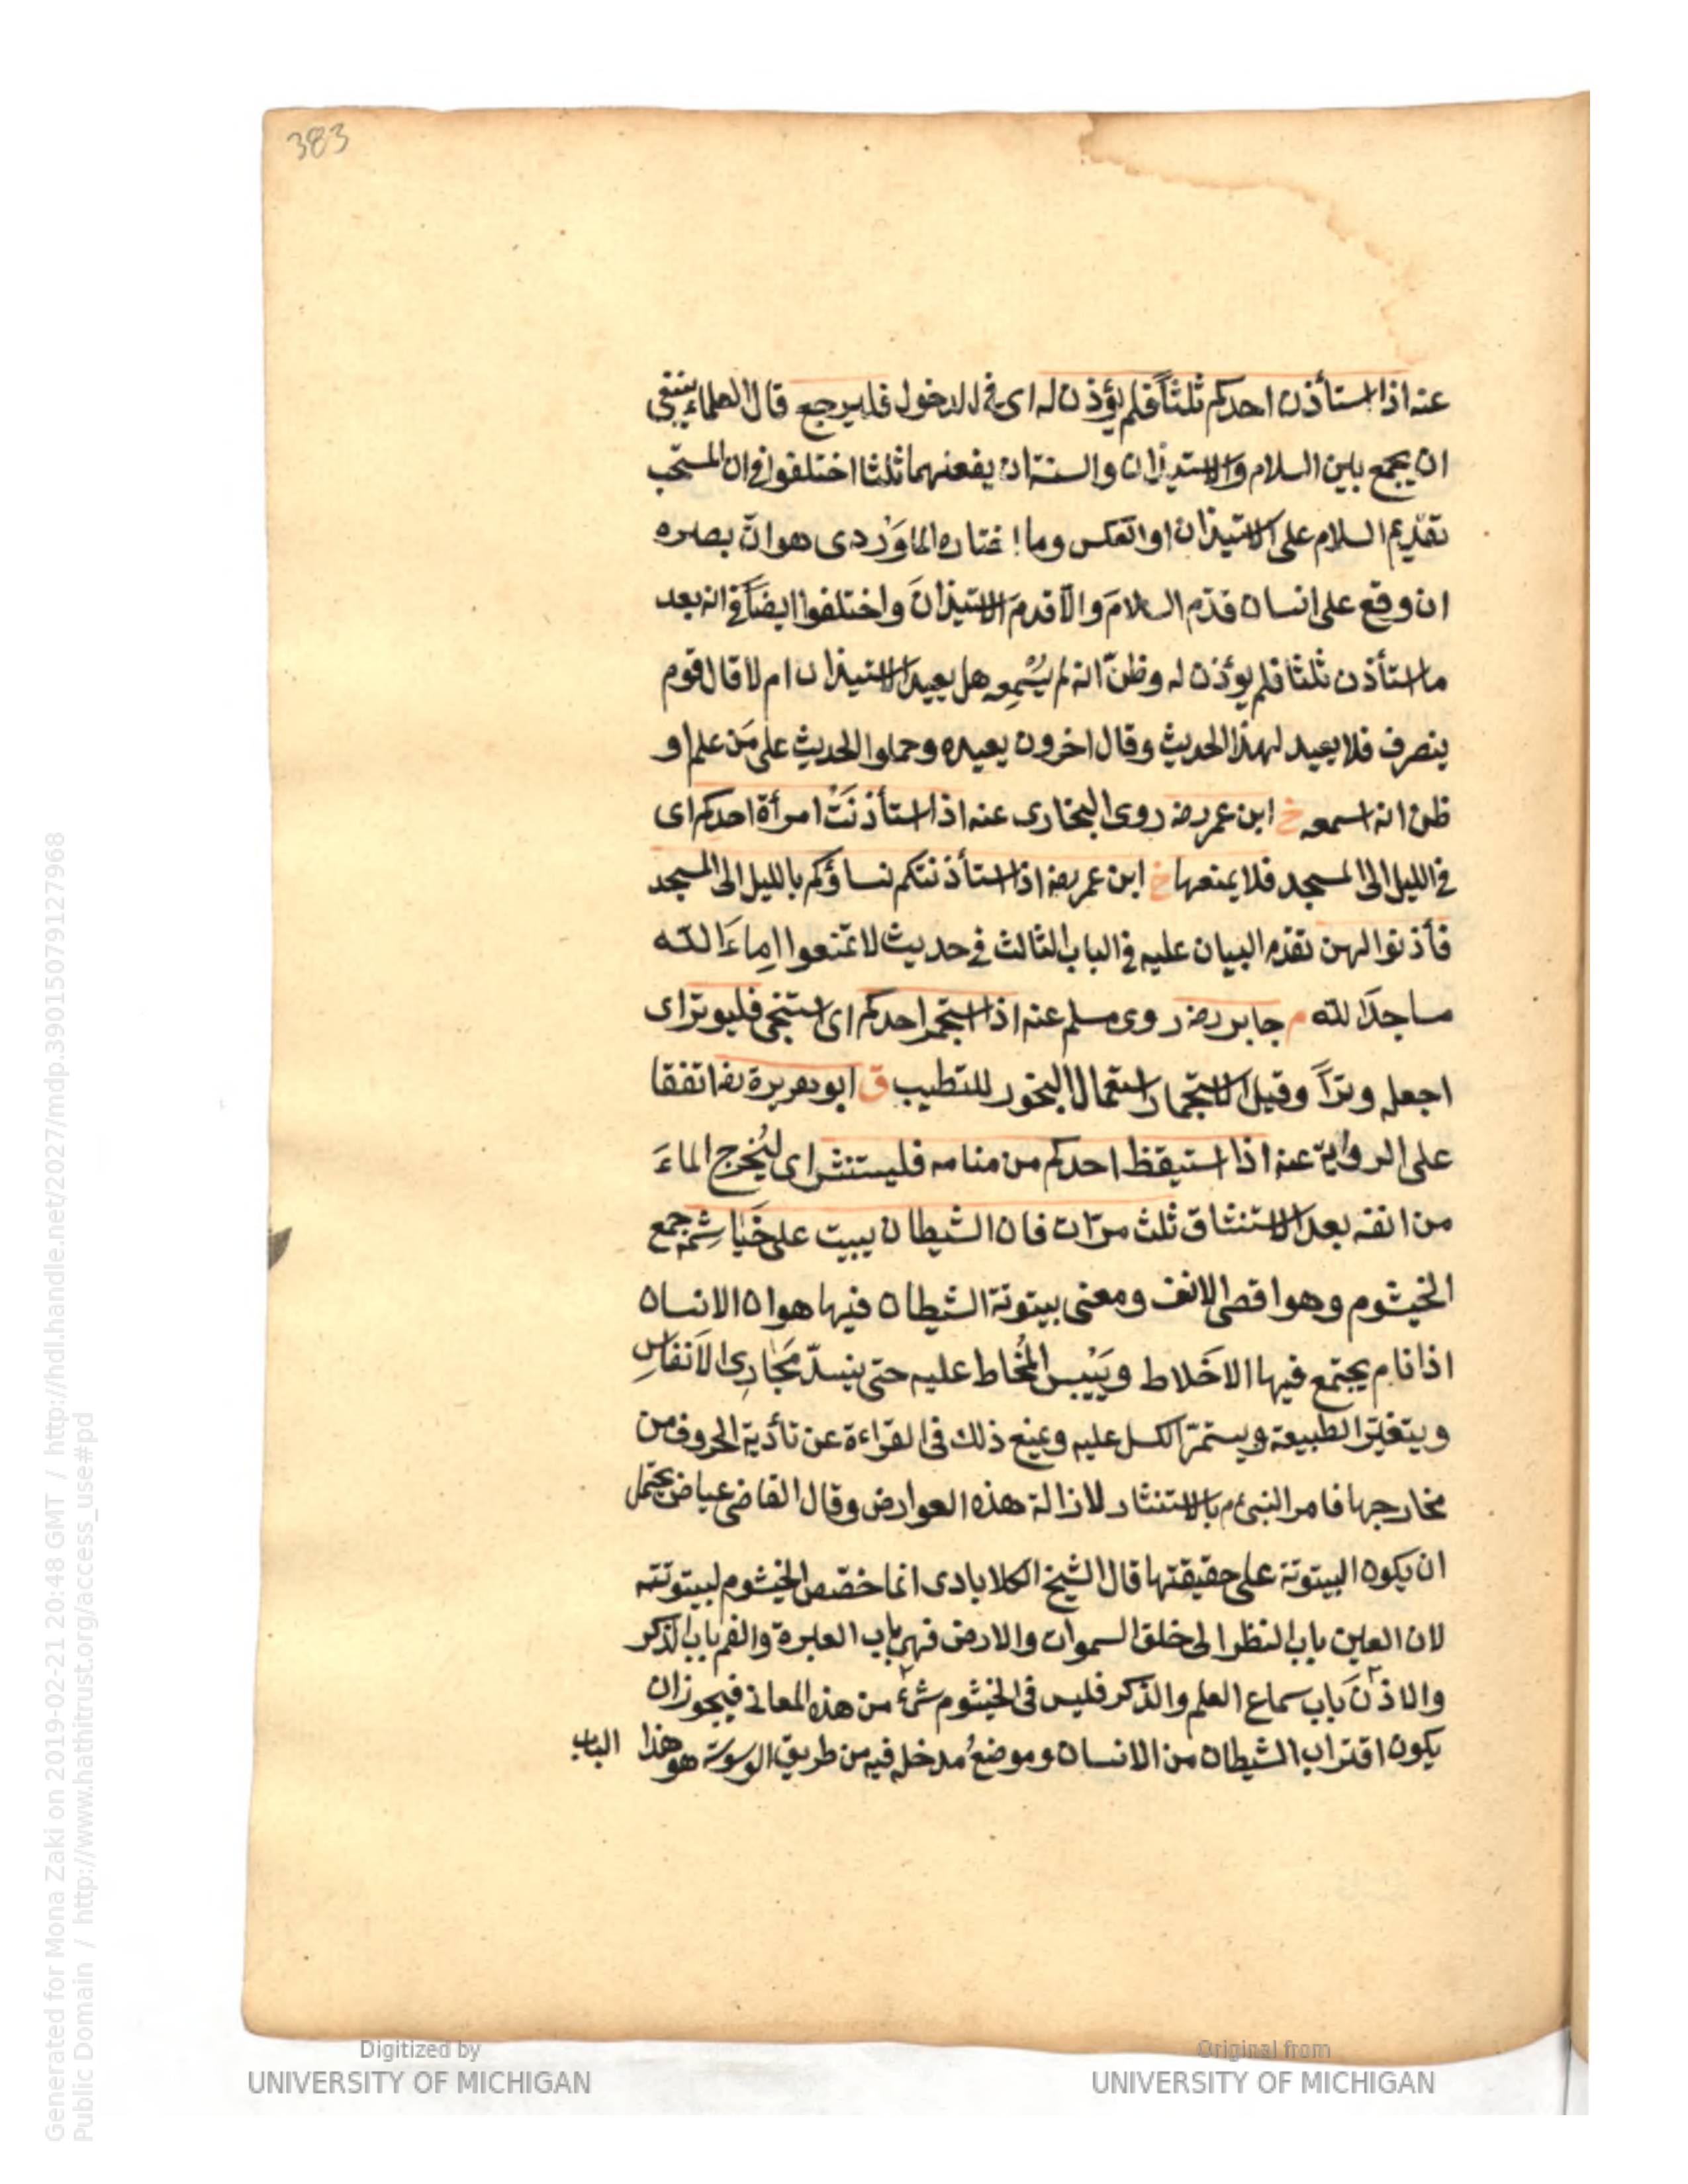 383
عنه اذا استأذن احدكم ثلثاً فلم يؤذن له اى فى الدخول فليرجع قال العلماء ينبغى
ان يجمع باين السلام والاستيذان والسنة ان يفعلهما ثلثا اختلفوا فى ان المستحب
تقديم السلام على الاستيذان او العكس وما اختاره الماوَرْدى هو انّ بصره
ان وقع على انسان قدّم السلامَ والّا قدم الاستيذانَ واختلفوا ايضاً فى انه بعد
ما استأذن ثلثا فلم يؤذن له وظنّ انه لم يُسْمِعه هل يعيد الاستيذان ام لا قال قوم
ينصرف فلا يعيد لهذا الحديث وقال اخرون يعيده وحملوا الحديث على مَن علم او
ظن انه اسمعه خ ابن عمر رضه روى البخارى عنه اذا استأذنَتْ امرأة احدكم اى
فى الليل الى المسجد فلا يمنعها خ ابن عمر رضه اذا استأذنتكم نساؤكم بالليل الى المسجد
فأذنوا لهن تقدم البيان عليه فى الباب الثالث فى حديث لا تمنعوا اِماءَ الله
مساجدَ الله م جابر رضه روى مسلم عنه اذا استجمر احدكم اى استنجى فليوتر اى
اجعله وتراً وقيل الاستجمار استعمال البخور للتطيب ق ابو هريرة رضه اتفقا
على الرواية عنه اذا استيقظ احدكم من منامه فليستنثر اى لِيُخرج الماءَ
من انفه بعد الاستنشاق ثلث مرّات فان الشيطان يبيت على خَيَاشِمه جمع
الخيشوم وهو اقصى الانف ومعنى بيتوتة الشيطان فيها هو ان الانسان
اذا نام يجتمع فيها الاخلاط ويَيْبس المُخاط عليه حتى ينسدّ مَجَارِى الاَنفاسِ
ويتغيّر الطبيعة ويستمرّ الكسل عليه ويمنع ذلك فى القراءة عن تأدية الحروف من
مخارجها فامر النبىّ م بالاستنثار لازالة هذه العوارض وقال القاضى عياض يحتمل
ان يكون البيتوتة على حقيقتها قال الشيخ الكلابادى انما خصّص الخيشوم لبيتوتته
لان العين باب النظر الى خلق السموات والارض فهى باب العبرة والفم باب الذكر
والاذن باب سماع العلم والذكر فليس فى الخيشوم شئ من هذه المعانى فيجوز ان
يكون اقتراب الشيطان من الانسان وموضعُ مدخله فيه من طريق الوسوسة هو هذا
الباب
Generated for Mona Zaki on 2019-02-21 20:48 GMT / http://hdl.handle.net/2027/mdp.39015079127968
Public Domain / http://www.hathitrust.org/access_use#pd
Digitized by
UNIVERSITY OF MICHIGAN
Original from
UNIVERSITY OF MICHIGAN